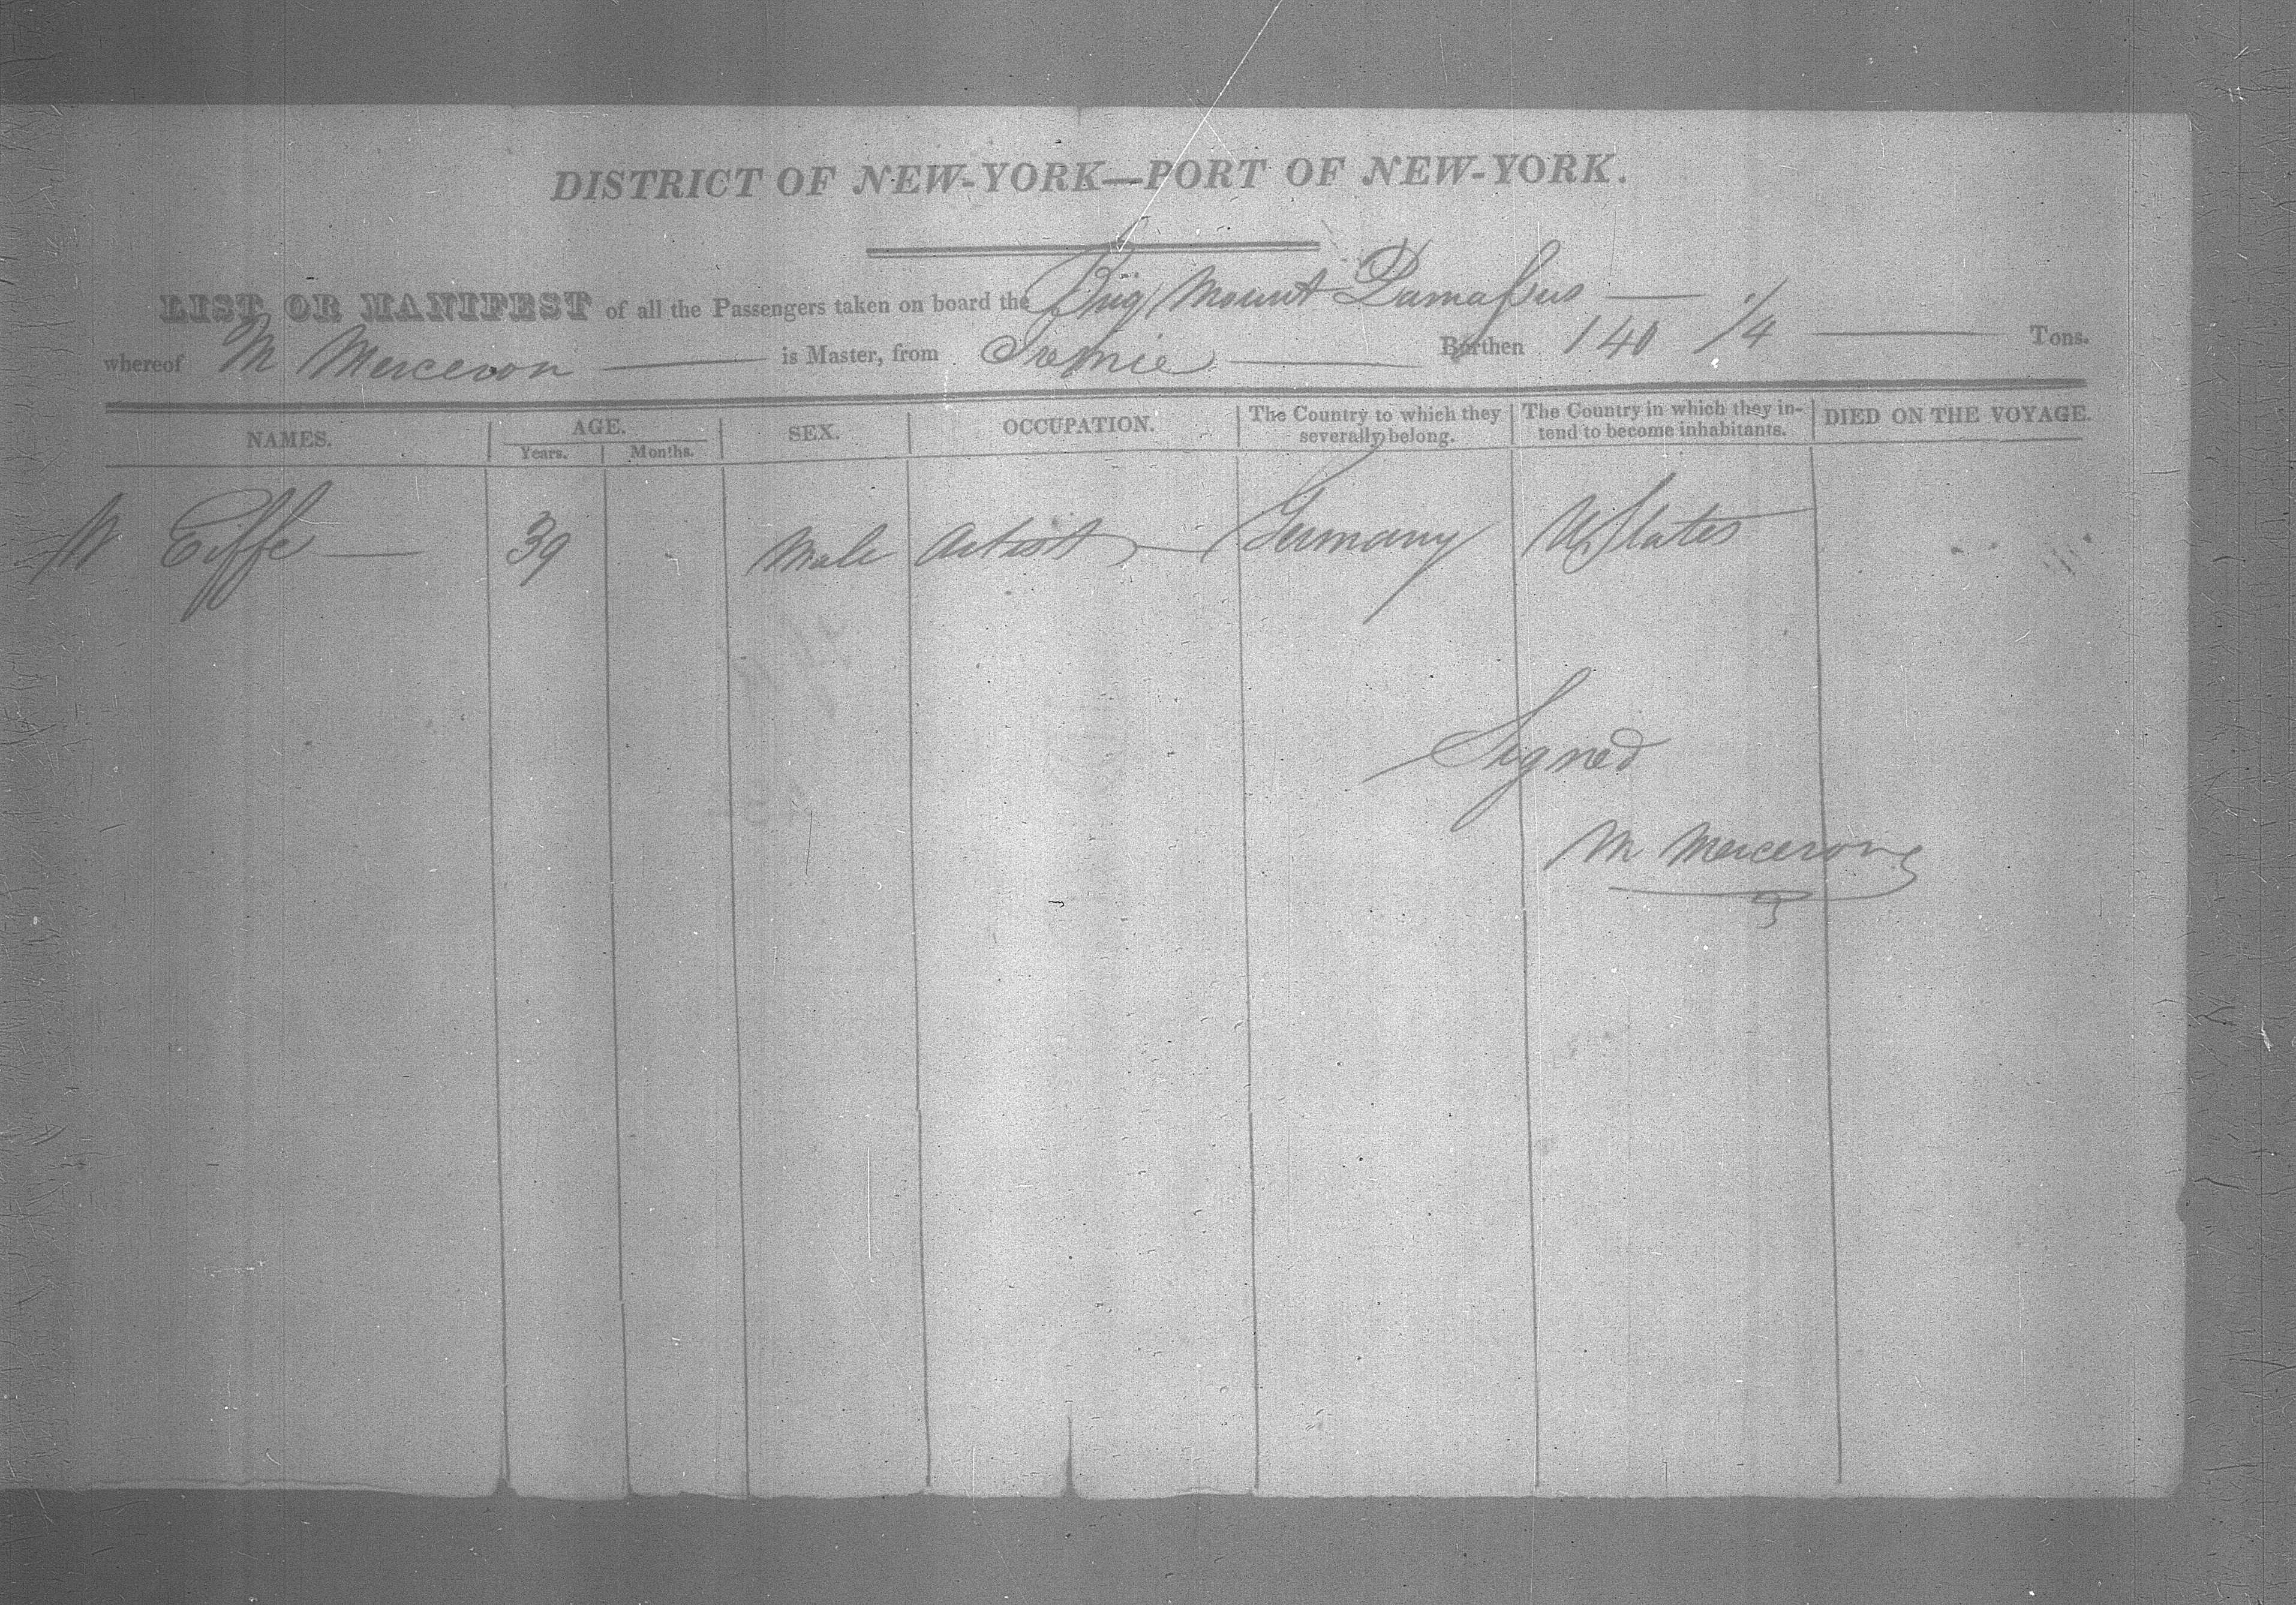 DISTRICT OF NEW-YORK—PORT OF NEW-YORK.
LIST OR MANIFEST of all the Passengers taken on board the Brig Mount Damascus
whereof M Merceron is Master, from Burthen 140 1/4 Tons.
NAMES. AGE. SEX. OCCUPATION. The Country to which they severally belong. The Country in which they intend to become inhabitants. DIED ON THE VOYAGE.
Years. Months.
Eiffe 39 Male Artist Germany U States
Signed
M Merceron